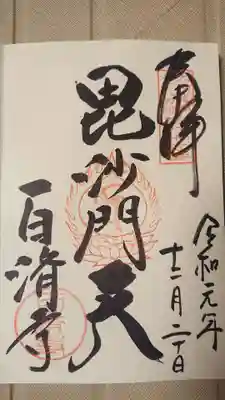 奉拝
令和元年
十二月二日
毘沙門天
百済寺